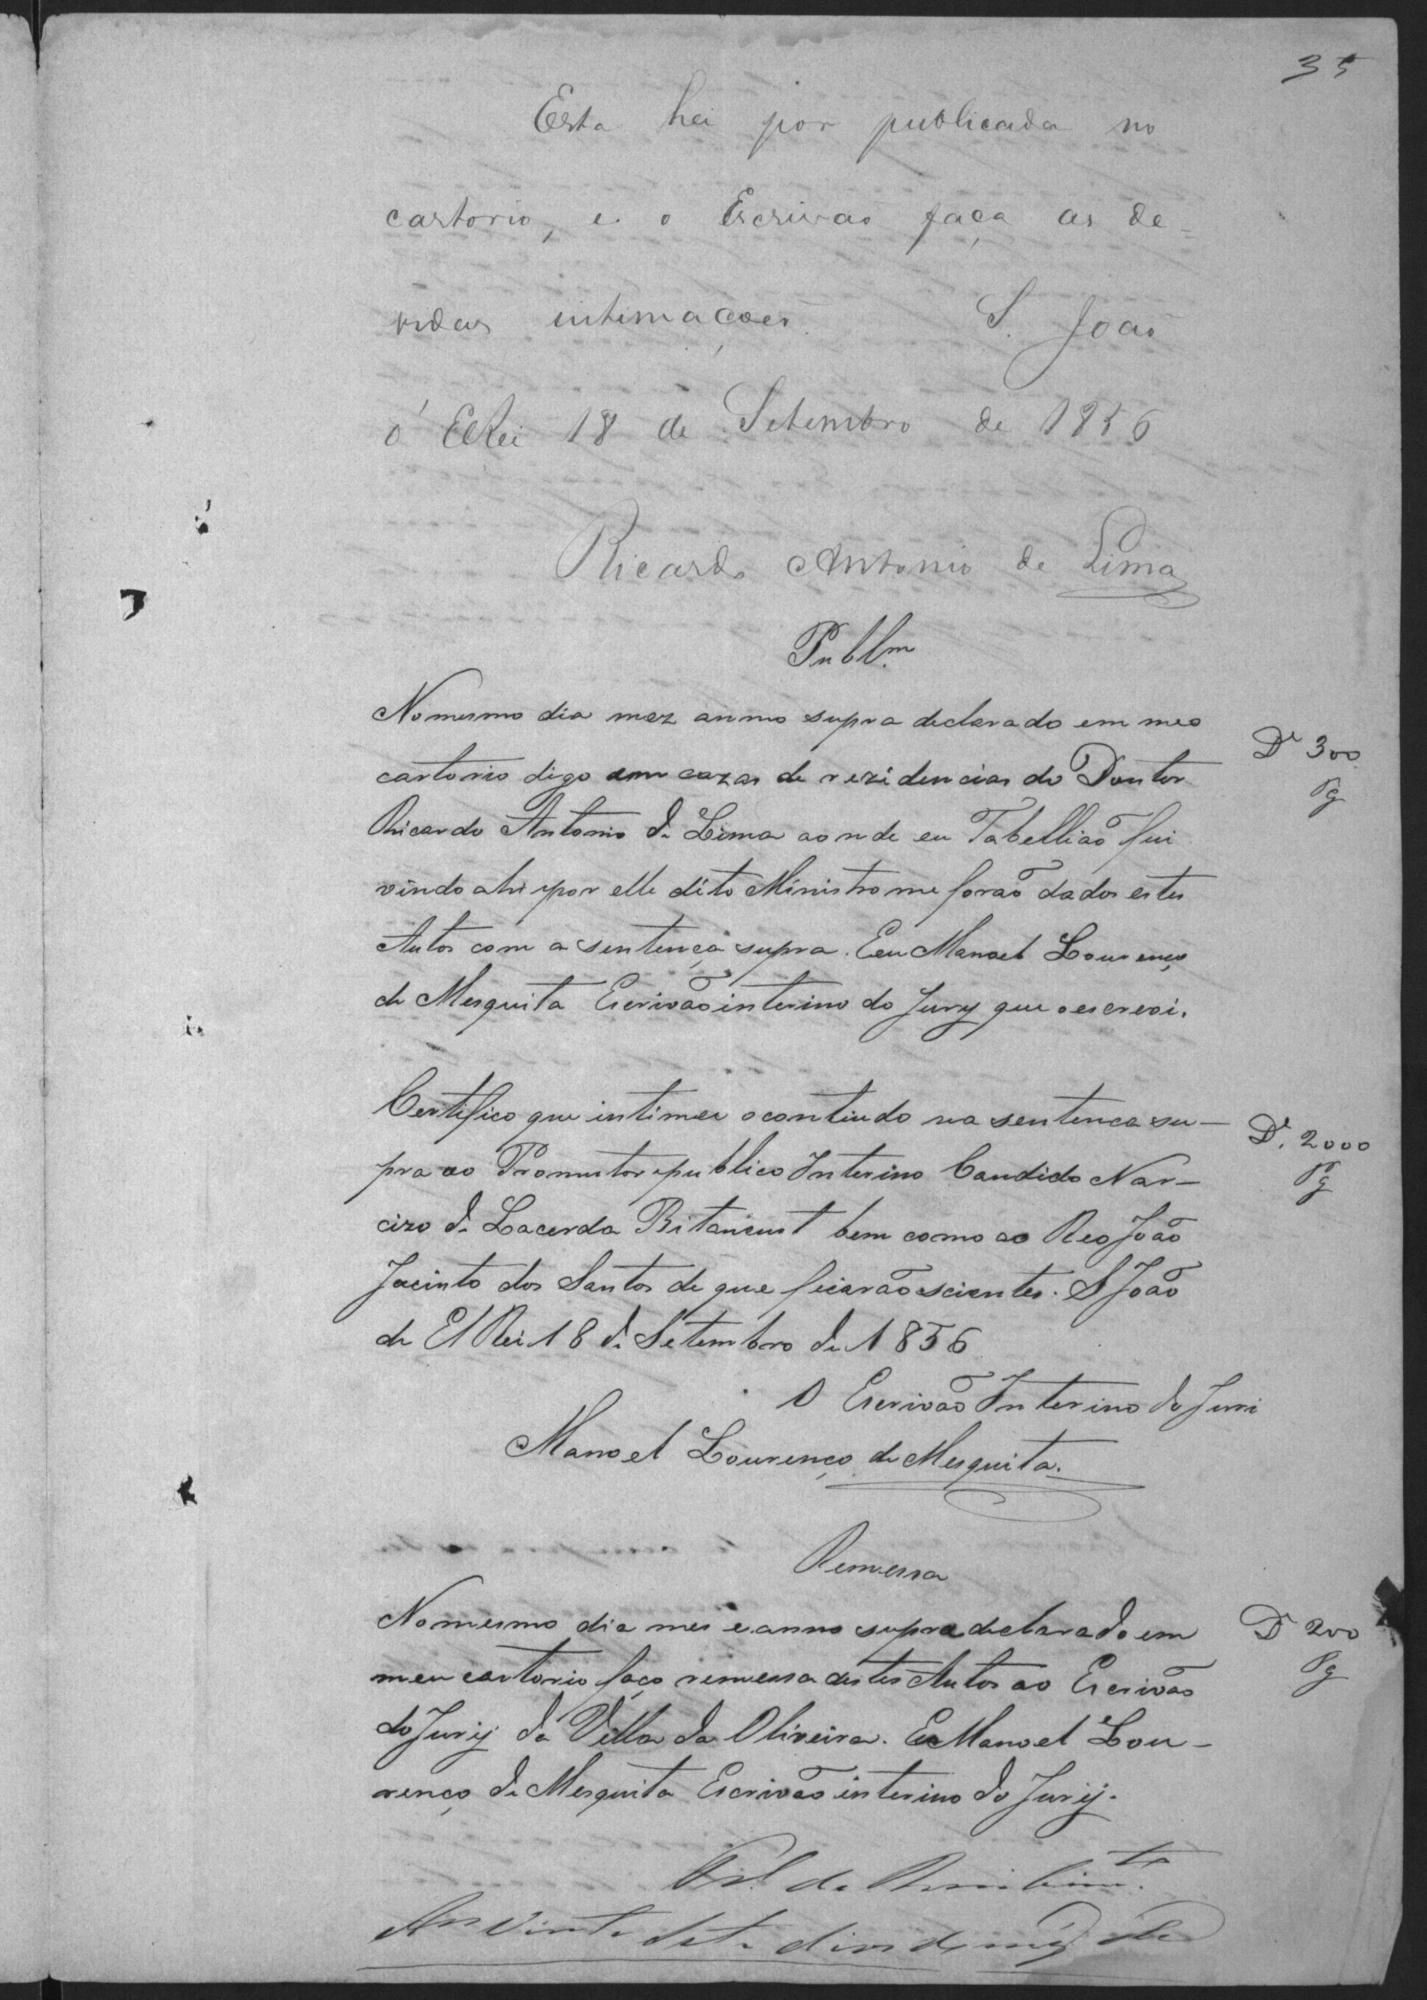 35
Esta hei por publicada no
cartorio, e o Escrivão faça as de=
vidas intimações. S. João
d' ElRei 18 de Setembro de 1856
Ricardo Antonio de Lima
Publ.m
No mesmo dia mez anno supra declarado em meo
D.e 300
cartorio digo em cazas de rezidencias do Doutor
Pg
Ricardo Antonio de Lima aonde eu Tabellião fui
vindo ahi e por elle dito Ministro me forão dados estes
Autos com a sentença supra. Eeu Manoel Lourenço
de Mesquita Escrivão interino do Jury que o escrevi.
Certifico que intimei o contiudo na sentenca su-
D.e 2000
pra ao Promutor publico Interino Candido Nar-
Pg
cizo de Lacerda Bitancurt bem como ao Reo João
Jacinto dos Santos de que ficarão scientes. S João
de El Rei 18 de Setembro de 1856
O Escrivão Interino do Juri
Manoel Lourenço de Mesquita.
Remessa
No mesmo dia mes e anno supra declarado em
D.e 200
meu cartorio faço remessa destes Autos ao Escrivão
Pg
do Jurij da Villa da Oliveira. Eu Manoel Lou-
renço de Mesquita Escrivão interino do Jurij.
de
Aos vinte sete dias do mes de